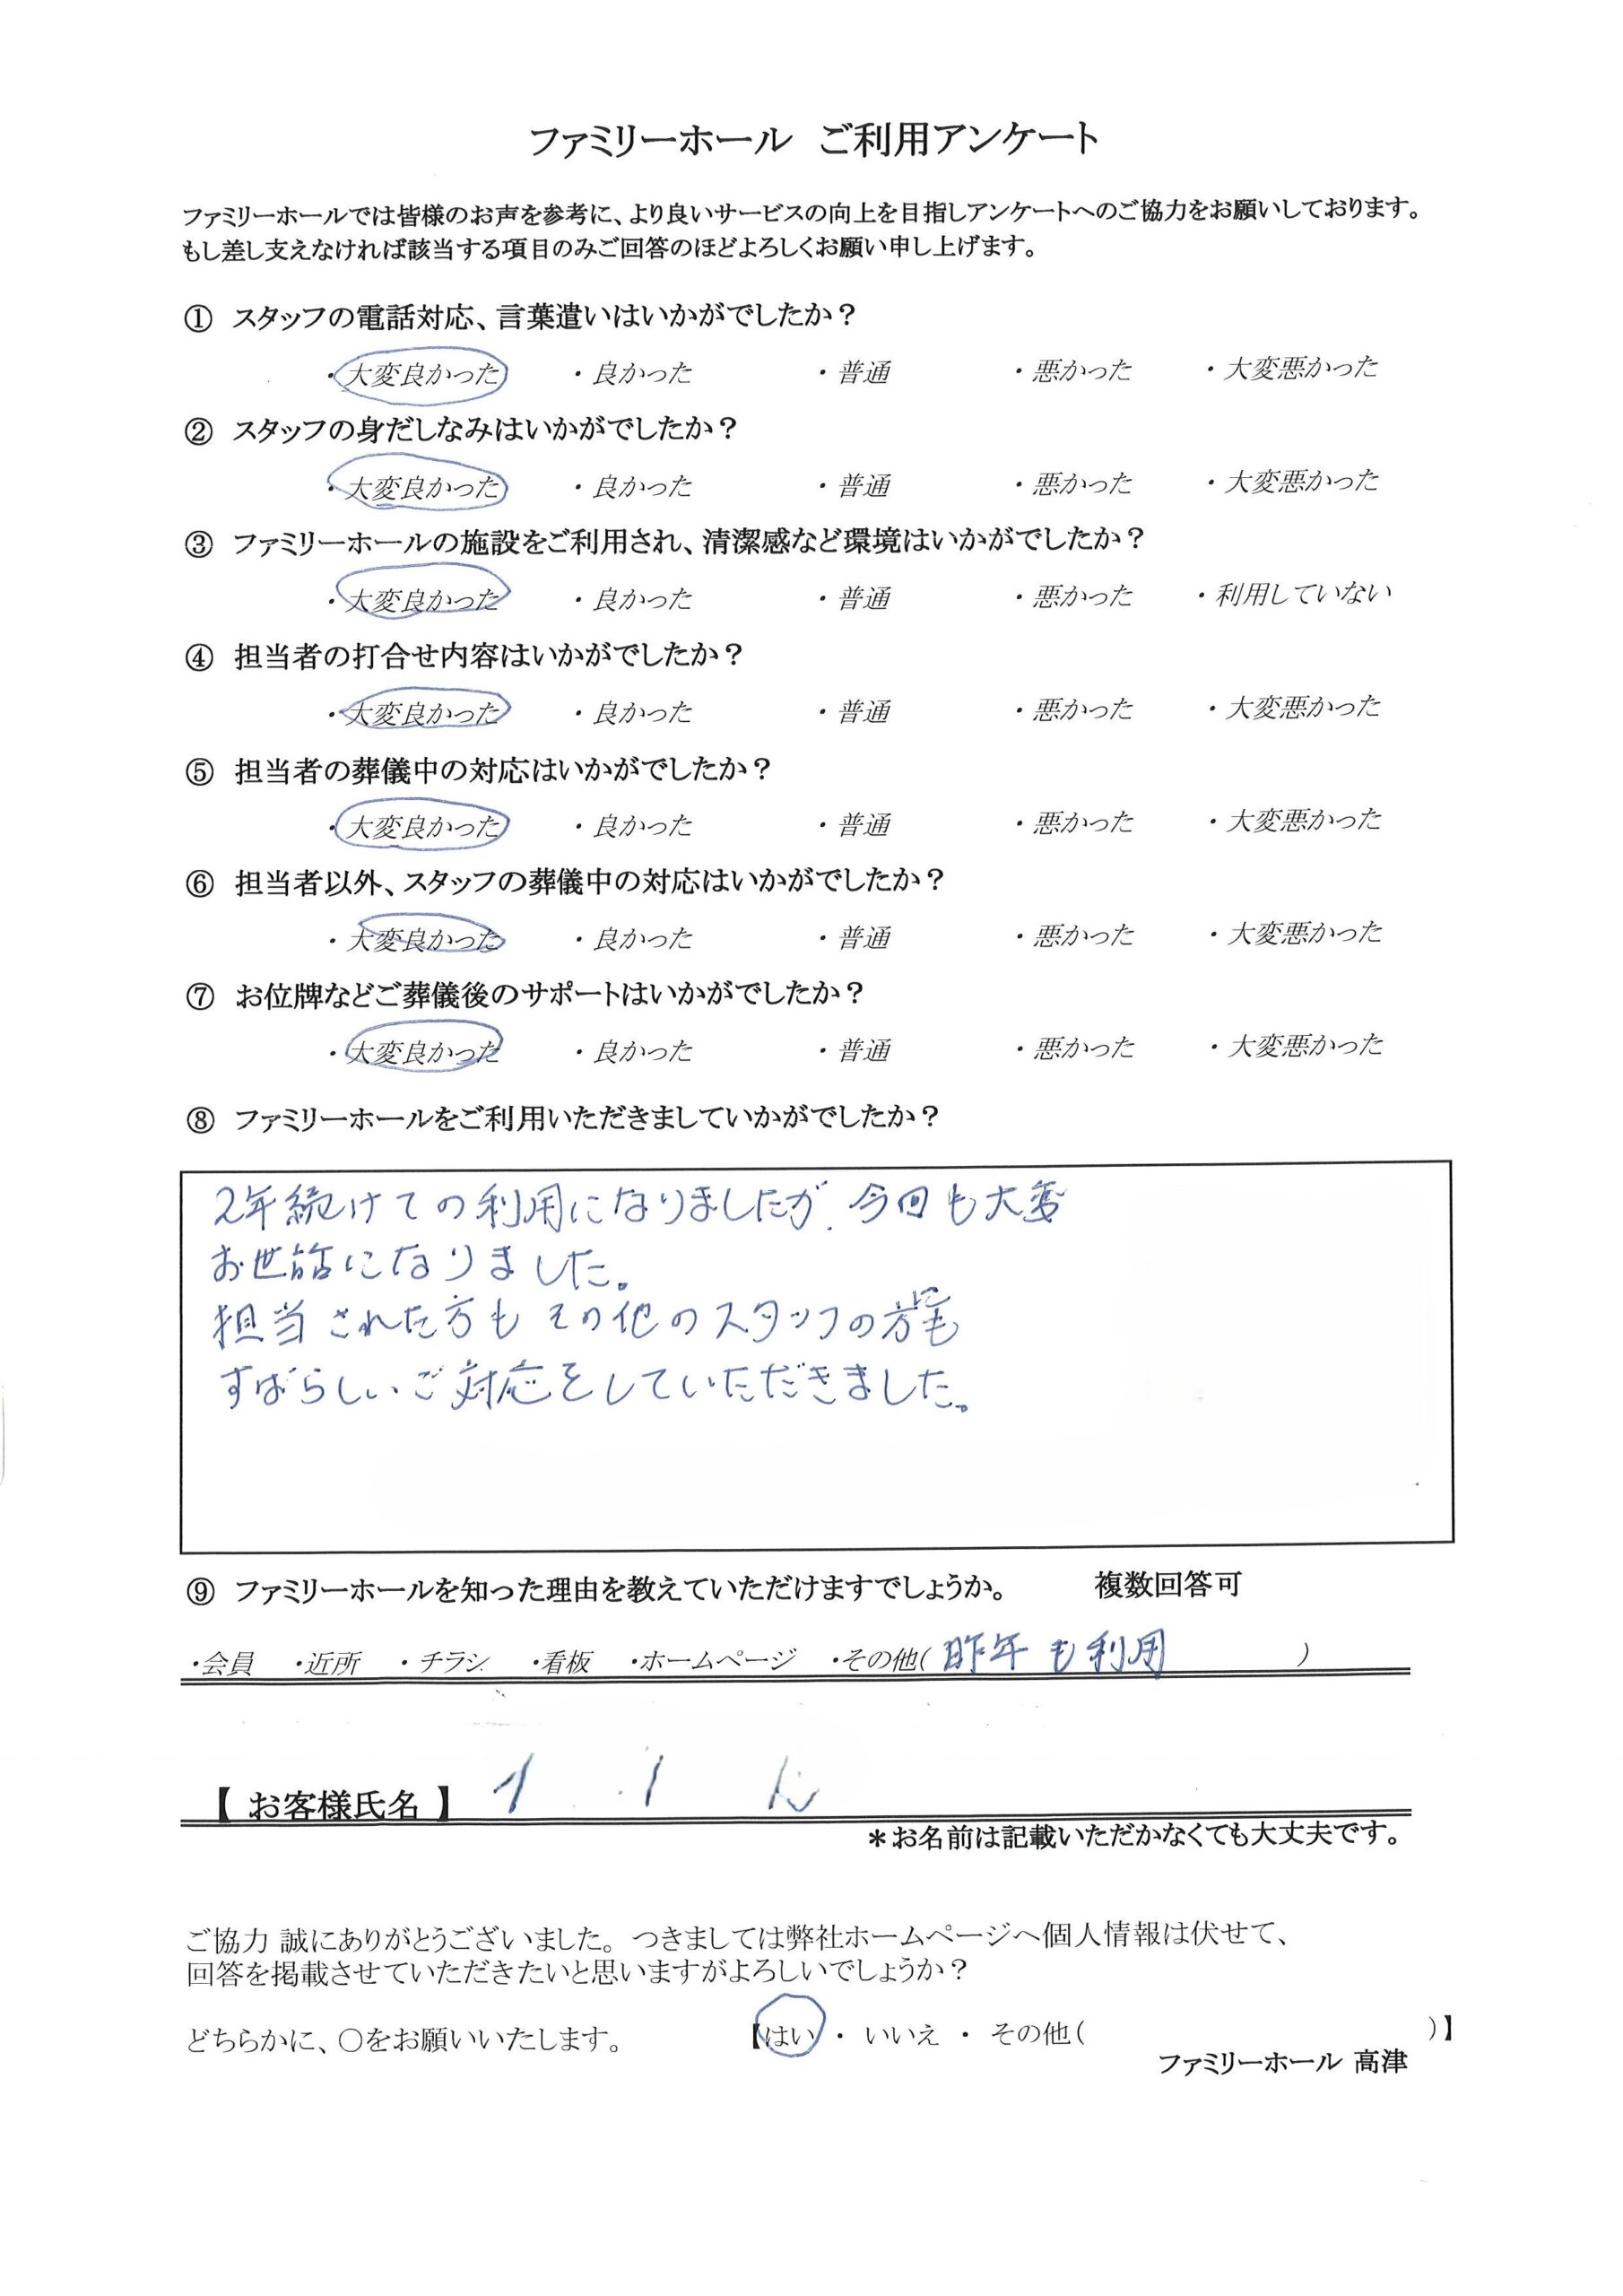 ファミリーホール ご利用アンケート
ファミリーホールでは皆様のお声を参考に、より良いサービスの向上を目指しアンケートへのご協力をお願いしております。
もし差し支えなければ該当する項目のみご回答のほどよろしくお願い申し上げます。
① スタッフの電話対応、言葉遣いはいかがでしたか？
・大変良かった ・良かった ・普通 ・悪かった ・大変悪かった
② スタッフの身だしなみはいかがでしたか？
・大変良かった ・良かった ・普通 ・悪かった ・大変悪かった
③ ファミリーホールの施設をご利用され、清潔感など環境はいかがでしたか？
・大変良かった ・良かった ・普通 ・悪かった ・利用していない
④ 担当者の打合せ内容はいかがでしたか？
・大変良かった ・良かった ・普通 ・悪かった ・大変悪かった
⑤ 担当者の葬儀中の対応はいかがでしたか？
・大変良かった ・良かった ・普通 ・悪かった ・大変悪かった
⑥ 担当者以外、スタッフの葬儀中の対応はいかがでしたか？
・大変良かった ・良かった ・普通 ・悪かった ・大変悪かった
⑦ お位牌などご葬儀後のサポートはいかがでしたか？
・大変良かった ・良かった ・普通 ・悪かった ・大変悪かった
⑧ ファミリーホールをご利用いただきましていかがでしたか？
2年続けての利用になりましたが、今回も大変
お世話になりました。
担当された方も その他のスタッフの方にも
すばらしいご対応をしていただきました。
⑨ ファミリーホールを知った理由を教えていただけますでしょうか。 複数回答可
・会員 ・近所 ・チラシ ・看板 ・ホームページ ・その他( 昨年も利用 )
【 お客様氏名 】
＊お名前は記載いただかなくても大丈夫です。
ご協力 誠にありがとうございました。つきましては弊社ホームページへ個人情報は伏せて、
回答を掲載させていただきたいと思いますがよろしいでしょうか？
どちらかに、〇をお願いいたします。 【はい ・ いいえ ・ その他( )】
ファミリーホール 高津